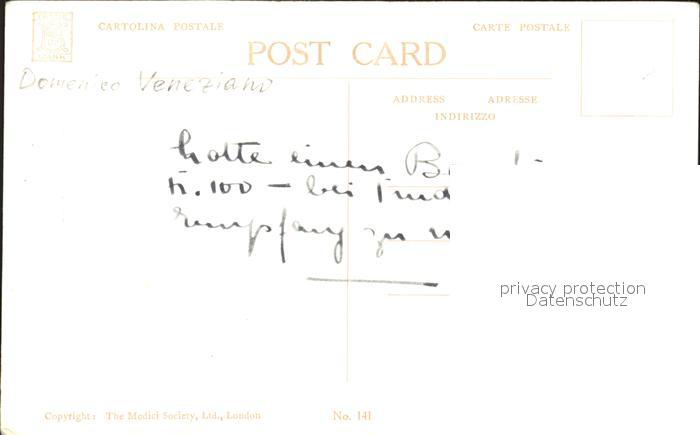 CARTOLINA POSTALE CARTE POSTALE
POST CARD
Domenico Veneziano
ADDRESS ADRESSE
INDIRIZZO
hatte einen B
Fr. 100 – bei
Empfang zu
privacy protection
Datenschutz
Copyright: The Medici Society, Ltd., London No. 141